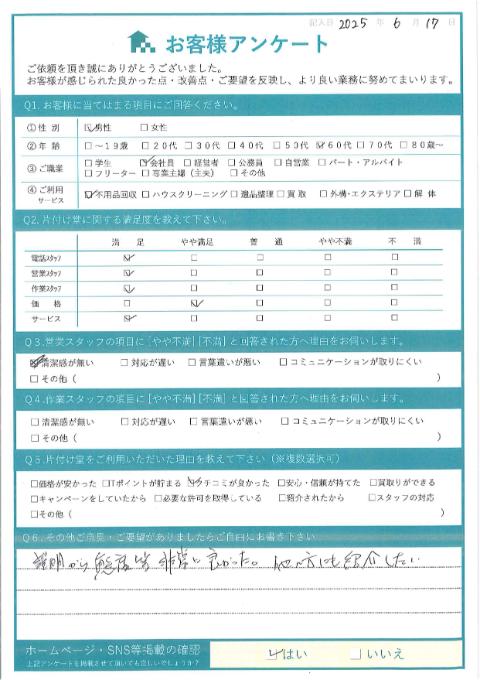 記入日 2025 年 6 月 17 日
お客様アンケート
ご依頼を頂き誠にありがとうございました。
お客様が感じられた良かった点・改善点・ご要望を反映し、より良い業務に努めてまいります。
Q1. お客様に当てはまる項目にご回答ください。
①性 別 ☑男性 □女性
②年 齢 □～19歳 □20代 □30代 □40代 □50代 ☑60代 □70代 □80歳～
③ご職業 □学生 ☑会社員 □経営者 □公務員 □自営業 □パート・アルバイト
□フリーター □専業主婦（主夫） □その他
④ご利用サービス ☑不用品回収 □ハウスクリーニング □遺品整理 □買取 □外構・エクステリア □解体
Q2. 片付け堂に関する満足度を教えて下さい。
満 足 やや満足 普 通 やや不満 不 満
電話スタッフ ☑ □ □ □ □
営業スタッフ ☑ □ □ □ □
作業スタッフ ☑ □ □ □ □
価 格 □ ☑ □ □ □
サービス ☑ □ □ □ □
Q3. 営業スタッフの項目に[やや不満][不満]と回答された方へ理由をお伺いします。
☑清潔感が無い □対応が遅い □言葉遣いが悪い □コミュニケーションが取りにくい
□その他（ ）
Q4. 作業スタッフの項目に[やや不満][不満]と回答された方へ理由をお伺いします。
□清潔感が無い □対応が遅い □言葉遣いが悪い □コミュニケーションが取りにくい
□その他（ ）
Q5. 片付け堂をご利用いただいた理由を教えて下さい（※複数選択可）
□価格が安かった □Tポイントが貯まる ☑クチコミが良かった □安心・信頼が持てた □買取りができる
□キャンペーンをしていたから □必要な許可を取得している □紹介されたから □スタッフの対応
□その他（ ）
Q6. その他ご意見・ご要望がありましたらご自由にお書き下さい
説明から態度皆非常に良かった。他の方にも紹介したい
ホームページ・SNS等掲載の確認 ☑はい □いいえ
上記アンケートを掲載させて頂いても宜しいでしょうか？